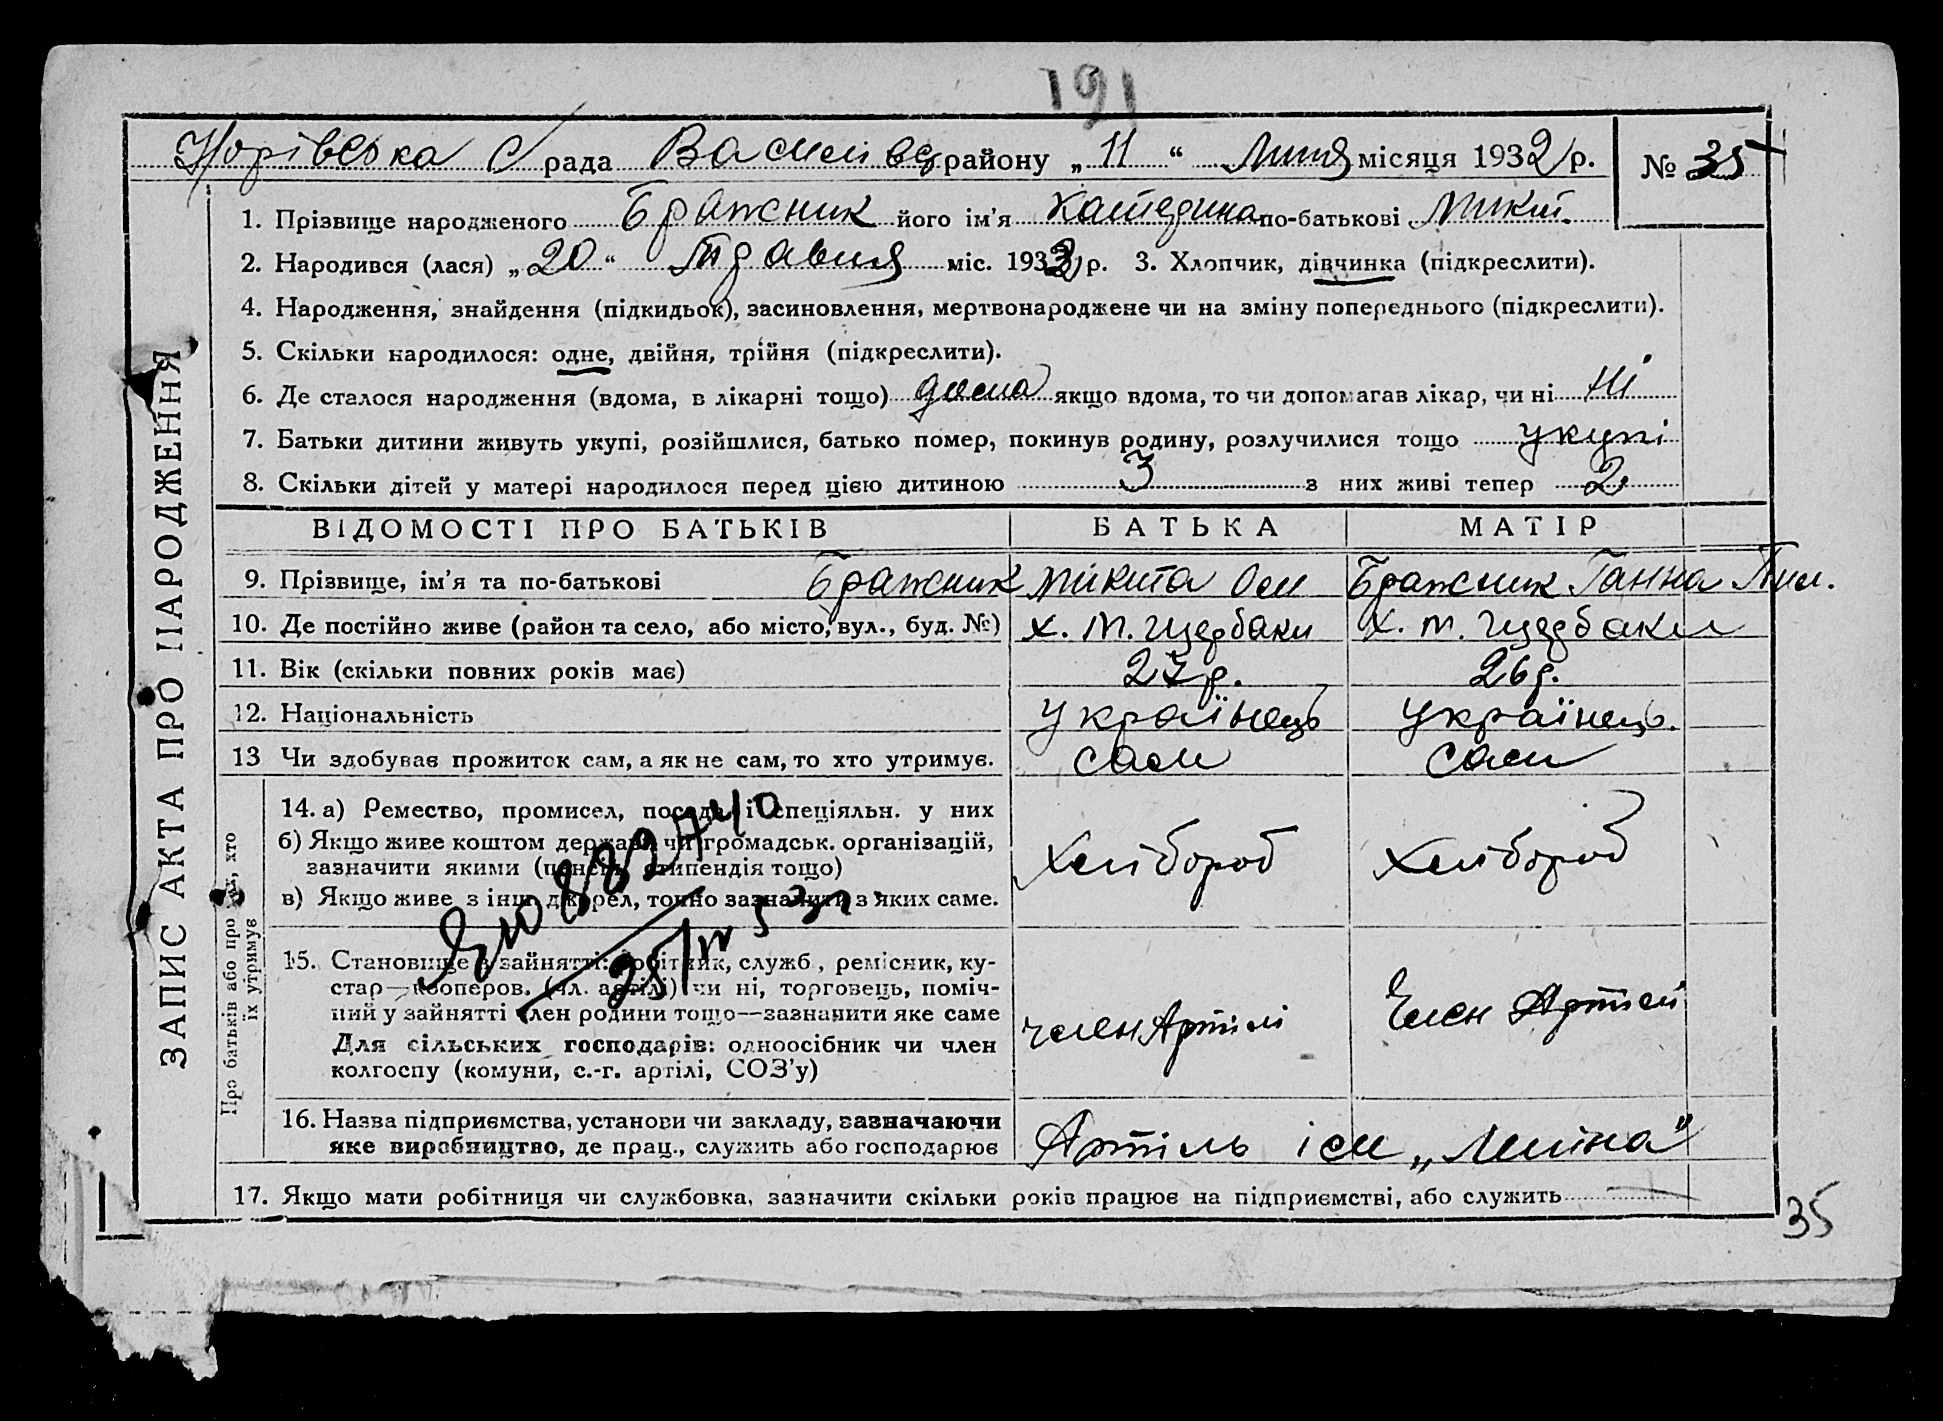 191
рада Василівс району „ 11 “ Липня місяця 1932 р. № 35
1. Прізвище народженого Бражник його ім’я Катерина по-батькові Микит.
2. Народився (лася) „ 20 “ Травня міс. 1932 р. 3. Хлопчик, дівчинка (підкреслити).
4. Народження, знайдення (підкидьок), засиновлення, мертвонароджене чи на зміну попереднього (підкреслити).
5. Скільки народилося: одне, двійня, трійня (підкреслити).
6. Де сталося народження (вдома, в лікарні тощо) дома якщо вдома, то чи допомагав лікар, чи ні Ні
7. Батьки дитини живуть укупі, розійшлися, батько помер, покинув родину, розлучилися тощо укупі
8. Скільки дітей у матері народилося перед цією дитиною 3 з них живі тепер 2
ЗАПИС АКТА ПРО НАРОДЖЕННЯ
ВІДОМОСТІ ПРО БАТЬКІВ БАТЬКА МАТІР
9. Прізвище, ім’я та по-батькові Бражник Микита Оси Бражник Ганна Пил.
10. Де постійно живе (район та село, або місто, вул., буд. №) х. М. Щербаки х. М. Щербаки
11. Вік (скільки повних років має) 27 р. 26 р.
12. Національність Українець Українець.
13 Чи здобуває прожиток сам, а як не сам, то хто утримує. сам сам
Про батьків або про тих, хто їх утримує
14. а) Ремество, промисел, посада і спеціяльн. у них
б) Якщо живе коштом держави чи громадськ. організацій,
зазначити якими (пенсія, стипендія тощо) Хлібороб Хлібороб
в) Якщо живе з інш. джерел, точно зазначити з яких саме.
15. Становище в зайнятті: робітник, служб., ремісник, ку-
стар—кооперов. (чл. артілі) чи ні, торговець, поміч-
ний у зайнятті член родини тощо—зазначити яке саме
Для сільських господарів: одноосібник чи член
колгоспу (комуни, с.-г. артілі, СОЗ’у)
член Артілі Член Артілі
16. Назва підприємства, установи чи закладу, зазначаючи
яке виробництво, де прац., служить або господарює Артіль ім „Леніна“
17. Якщо мати робітниця чи службовка, зазначити скільки років працює на підприємстві, або служить
35